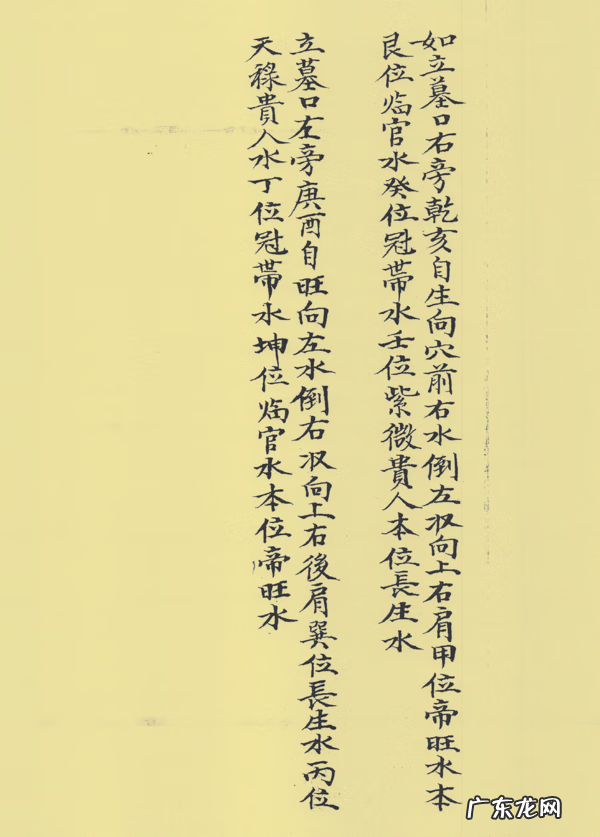 如立墓口右旁乾亥自生向穴前右水倒左収向上右肩甲位帝旺水本
艮位临官水癸位冠帶水壬位紫微貴人本位長生水
立墓口左旁庚酉自旺向左水倒右収向上右後肩巽位長生水丙位
天祿貴人水丁位冠帶水坤位临官水本位帝旺水
广东龙网